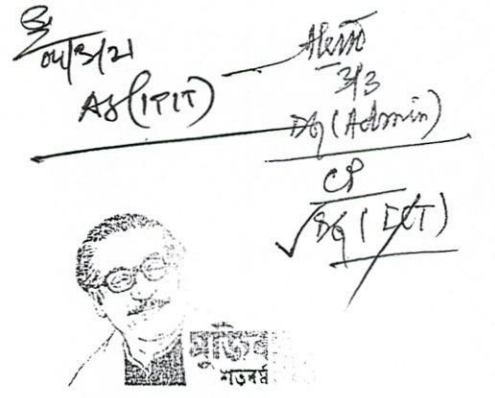 04/3/21
AS (IPIT)
৩/৩
DG (Admin)
CP
DG (ICT)
মুজিব
শতবর্ষ